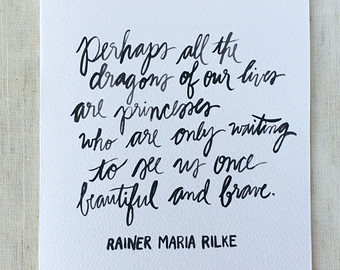 Perhaps all the
dragons of our lives
are princesses
who are only waiting
to see us once
beautiful and brave.
RAINER MARIA RILKE